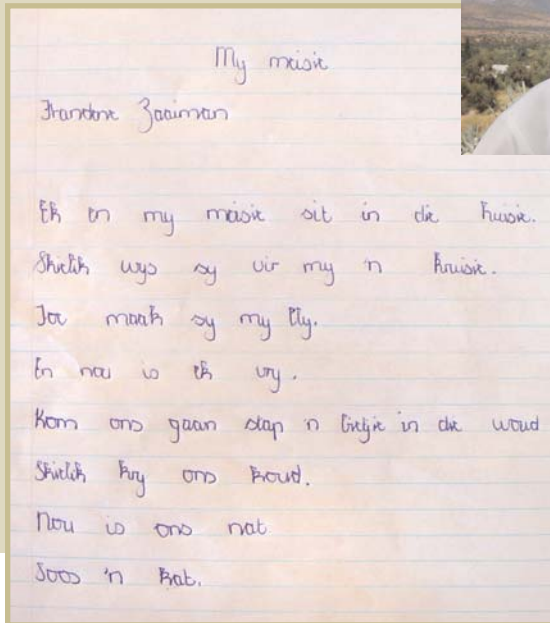 My meisie
Brandone Zaaiman
Ek en my meisie sit in die huisie.
Skielik wys sy vir my 'n kruisie.
Toe maak sy my bly.
En nou is ek vry.
Kom ons gaan stap 'n bietjie in die woud
Skielik kry ons koud.
Nou is ons nat
Soos 'n kat.